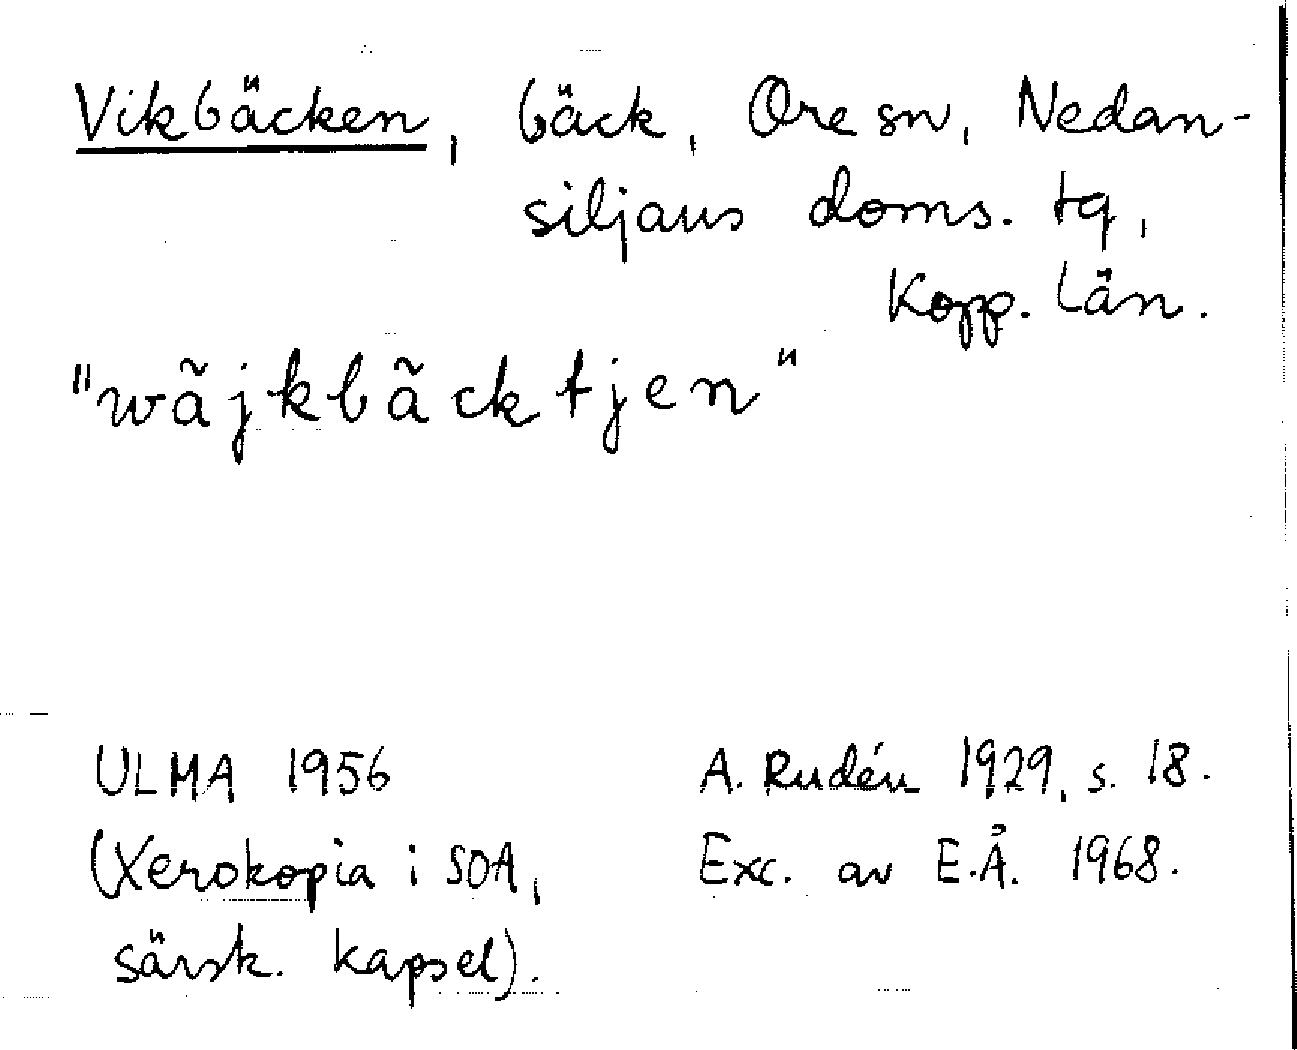 Vikbäcken, bäck, Ore sn, Nedan-
siljans doms. tg,
Kopp. län.
"wãjkbãcktjen"
ULMA 1956
(Xerokopia i SOA,
särsk. kapsel).
A. Rudén 1929, s. 18.
Exc. av E.Å. 1968.